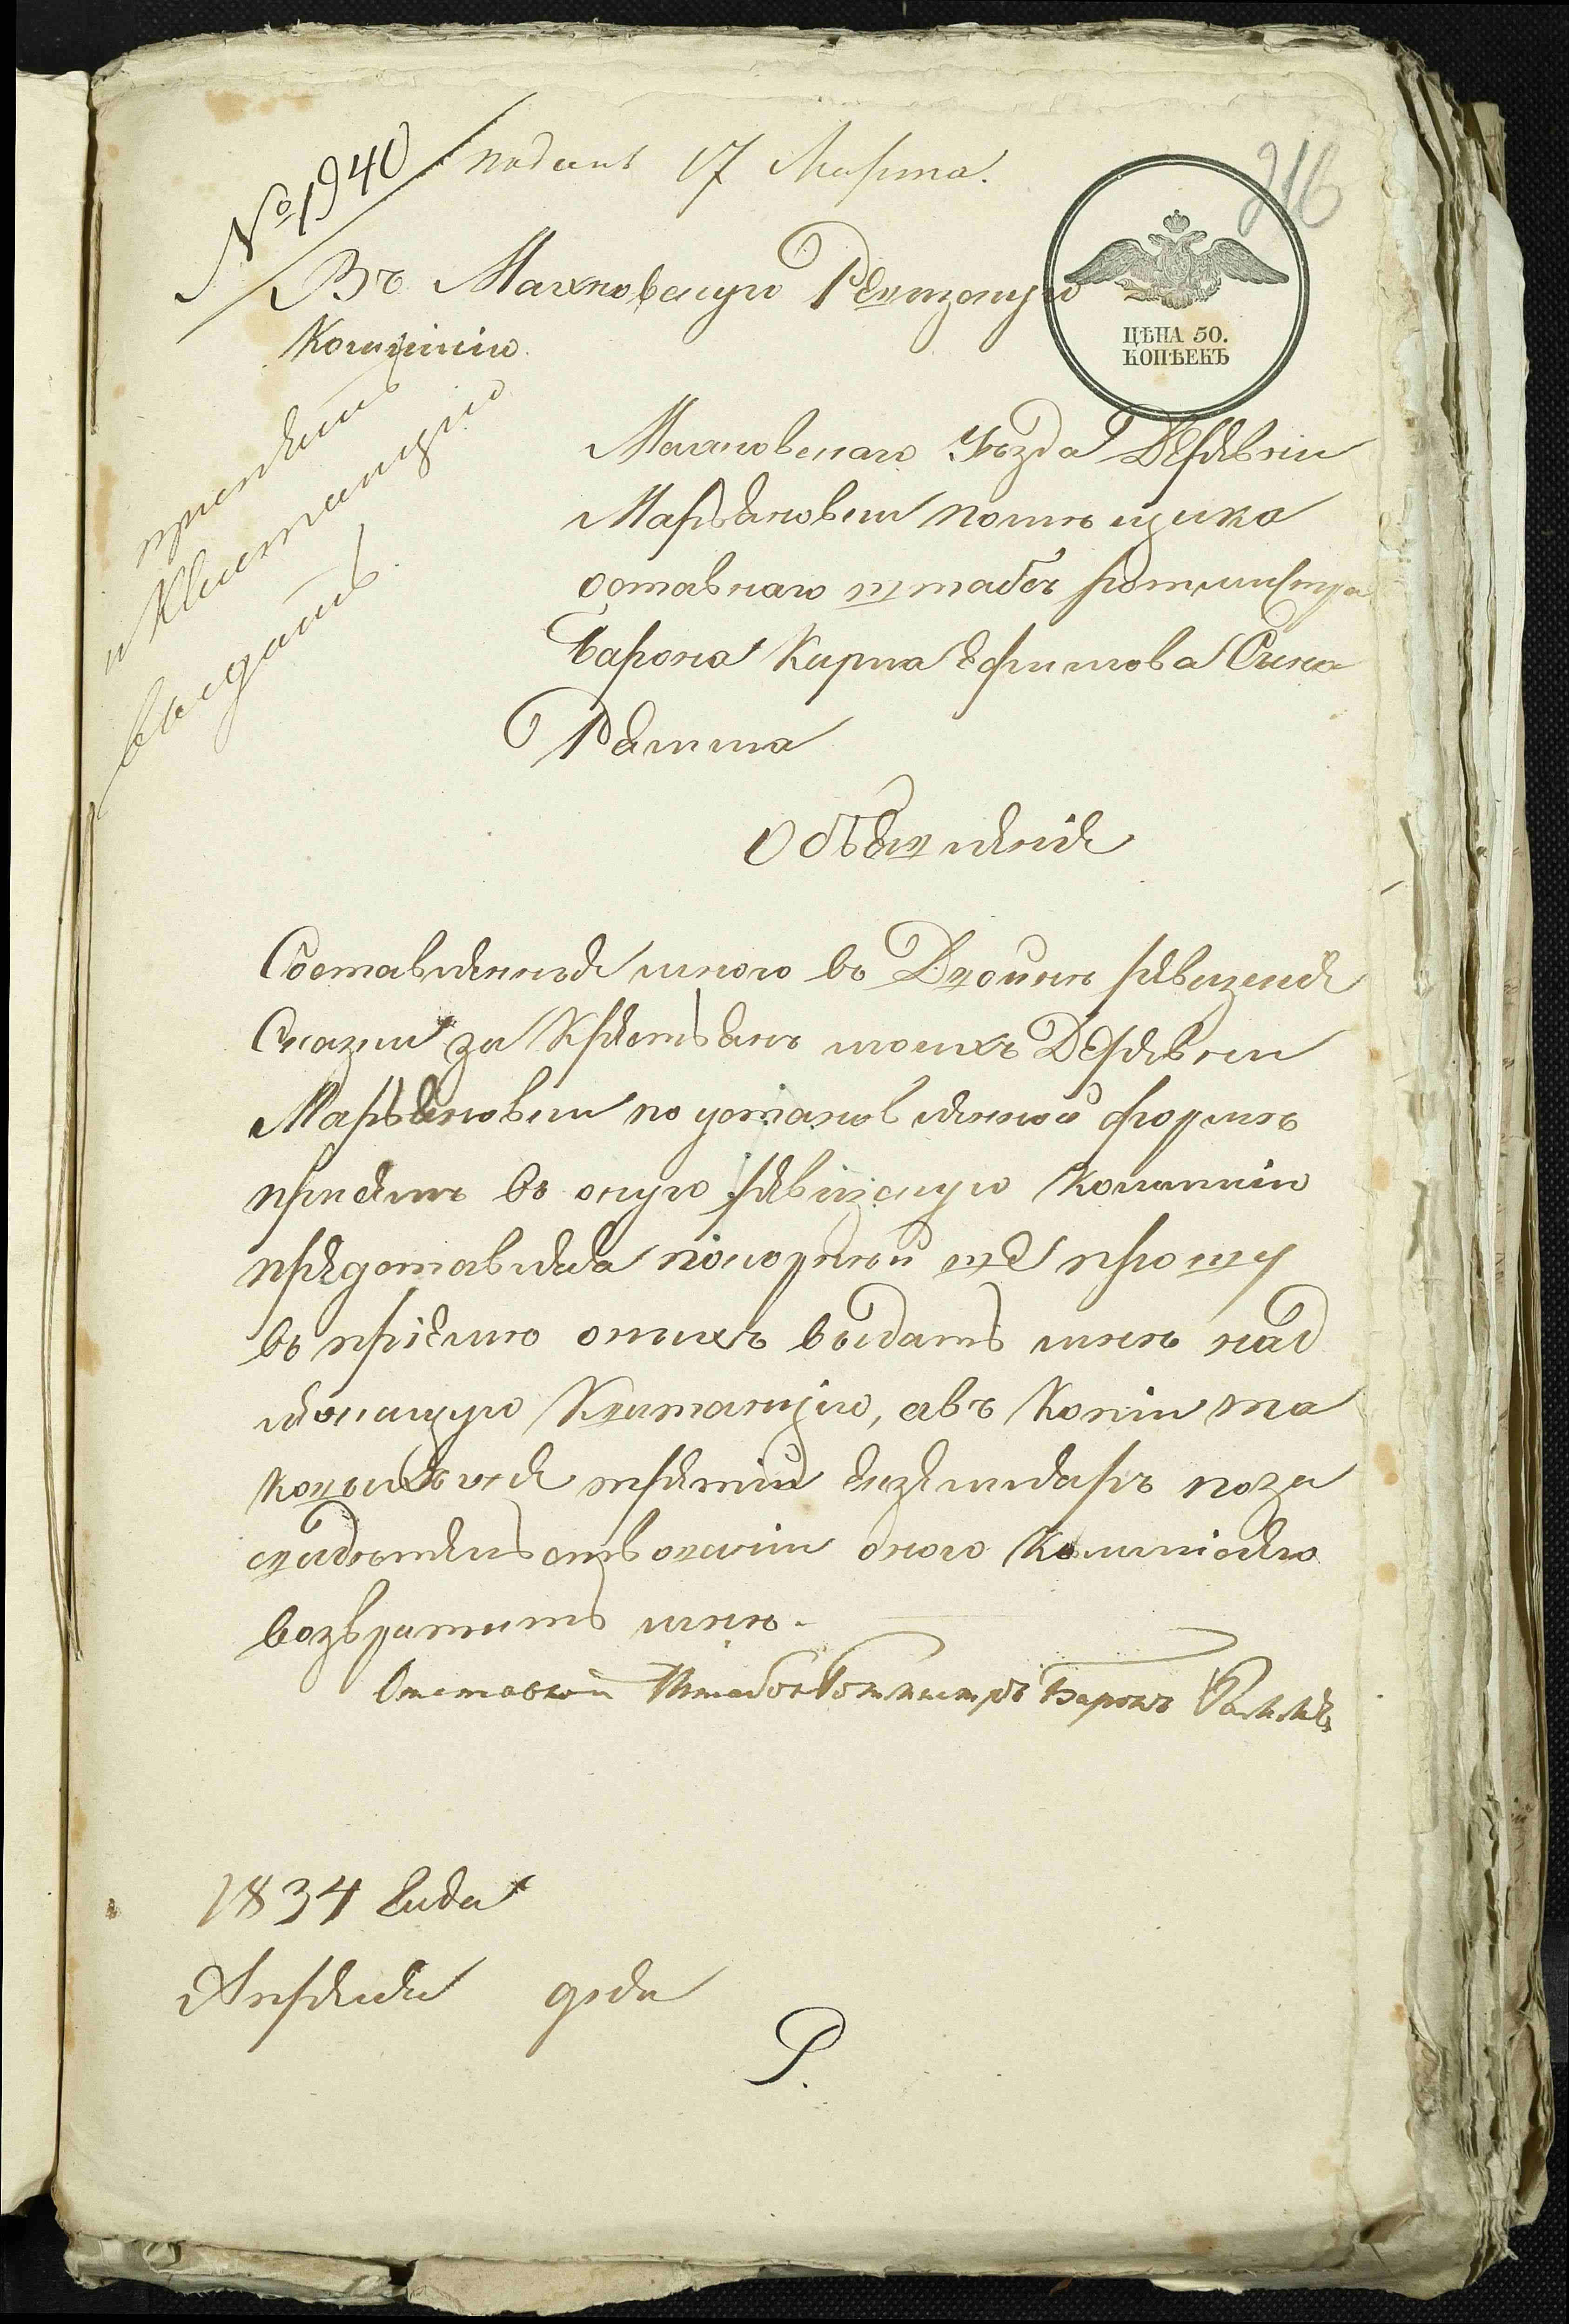 № 1940
подано 17 Марта.
216
Въ Махновскую Ревизскую
Комиссію
ЦѢНА 50.
КОПѢЕКЪ
принять
и Квитанцію
выдать.
Махновскаго Уѣзда Деревни
Марьяновки помѣщика
отставнаго штабсъ ротмистра
Барона Карла Ефимова Сына
Объявленіе
Составленныя мною въ Двойнѣ ревизскія
Сказки за Крестьянъ моихъ Деревни
Марьяновки по установленной формѣ
при семъ въ оную ревизскую Комиссію
представляя покорнѣйше прошу
въ пріемѣ оныхъ выдать мнѣ над
лежащую Квитанцію, а въ Копіи та
ковыхъ же третій экземпляръ по за
свидѣтельствованіи оного Комиссіею
возвратить мнѣ.
Отставной Штабсъ Ротмистръ Баронъ
1834 Года
Апреля дня
Р.